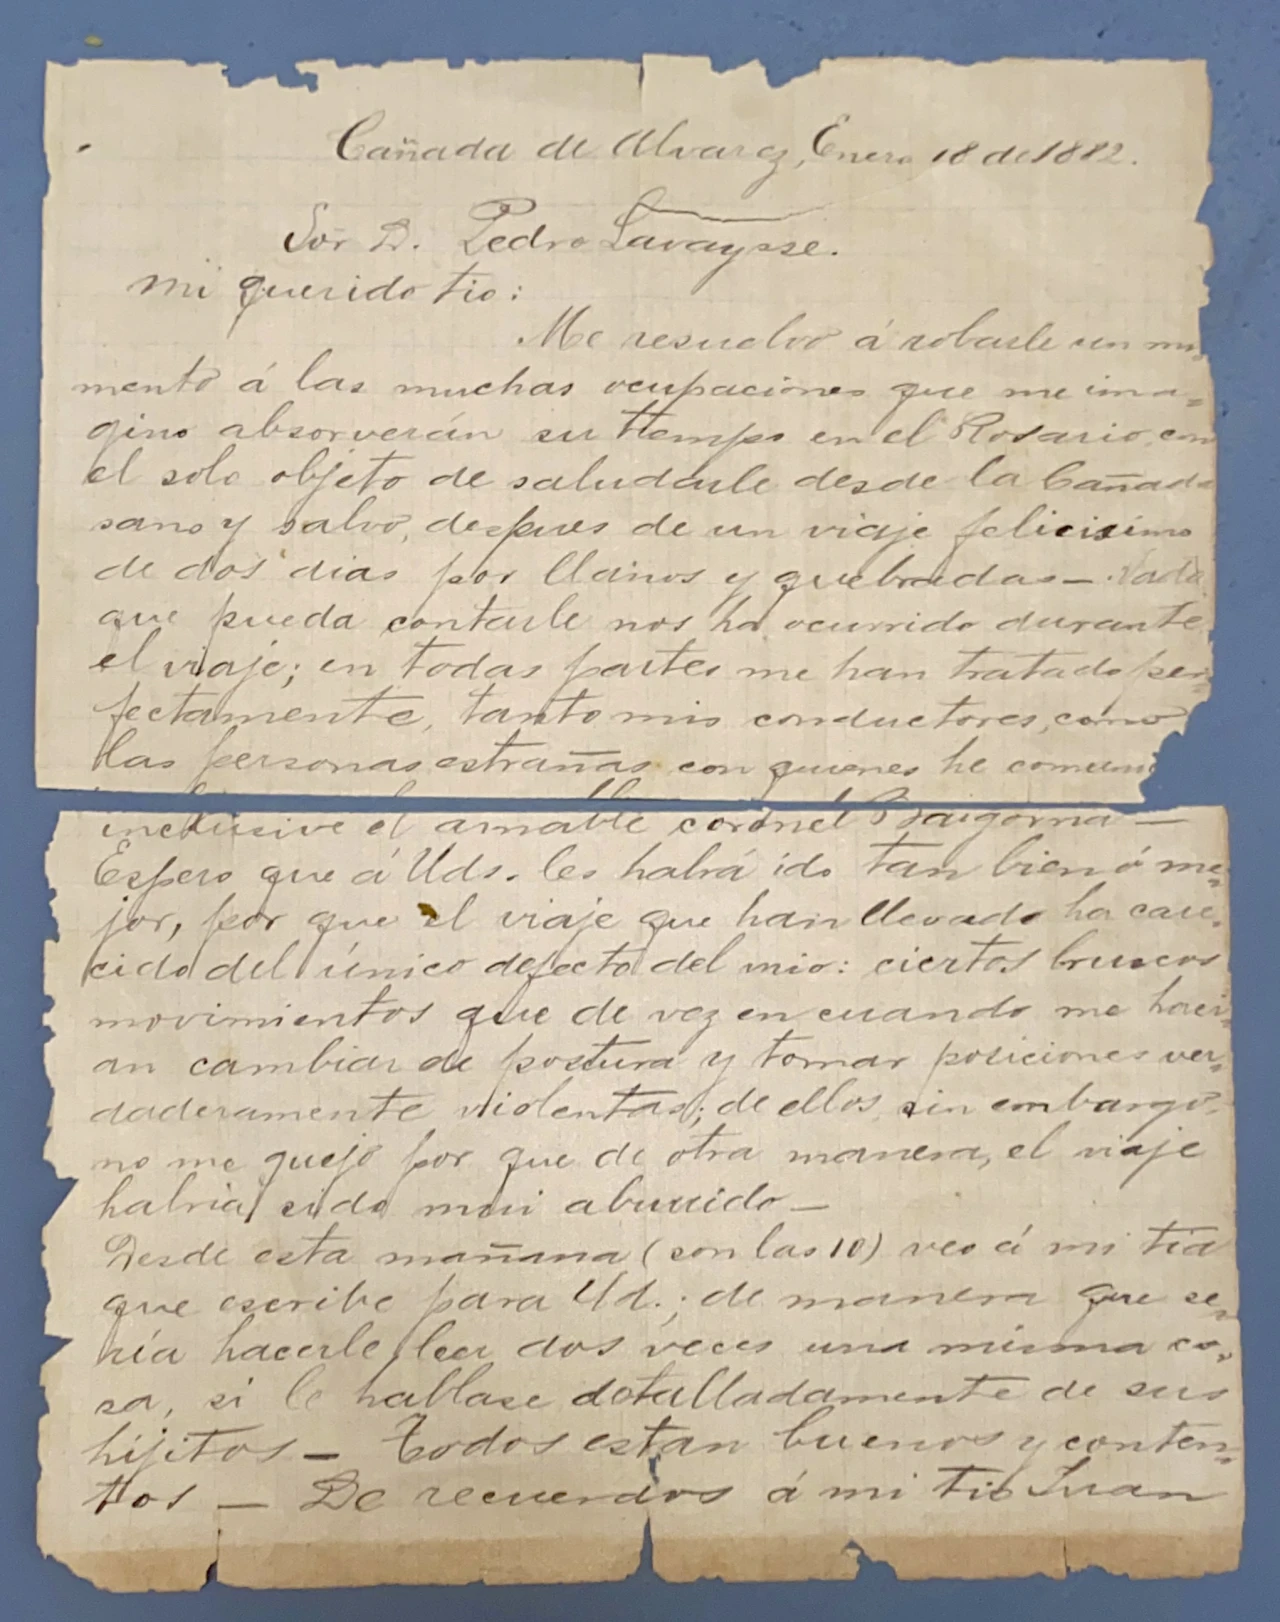 Cañada de Alvarez, Enero 18 de 1882.
Sor D. Pedro Lavaysse.
Mi querido tio:
Me resuelvo á robarle un mo
mento á las muchas ocupaciones que me ima=
gino absorverán su tiempo en el Rosario, con
el solo objeto de saludarle desde la Cañada
sano y salvo, despues de un viaje felicisimo
de dos dias por llanos y quebradas — Nada
que pueda contarle nos ha ocurrido durante
el viaje; en todas partes me han tratado per=
fectamente, tanto mis conductores, como
las personas estrañas con quienes he comuni
inclusive el amable coronel Baigorria —
Espero que á Uds. les habrá ido tan bien ó me=
jor, por que el viaje que han llevado ha care=
cido del único defecto del mio: ciertos bruscos
movimientos que de vez en cuando me haci=
an cambiar de postura y tomar posiciones ver=
daderamente violentas; de ellos, sin embargo,
no me quejo por que de otra manera, el viaje
habria sido mui aburrido —
Desde esta mañana (son las 10) veo á mi tia
que escribe para Ud.; de manera que se=
ría hacerle leer dos veces una misma co=
sa, si le hablase detalladamente de sus
hijitos — Todos estan buenos y conten=
tos — De recuerdos á mi tio Juan